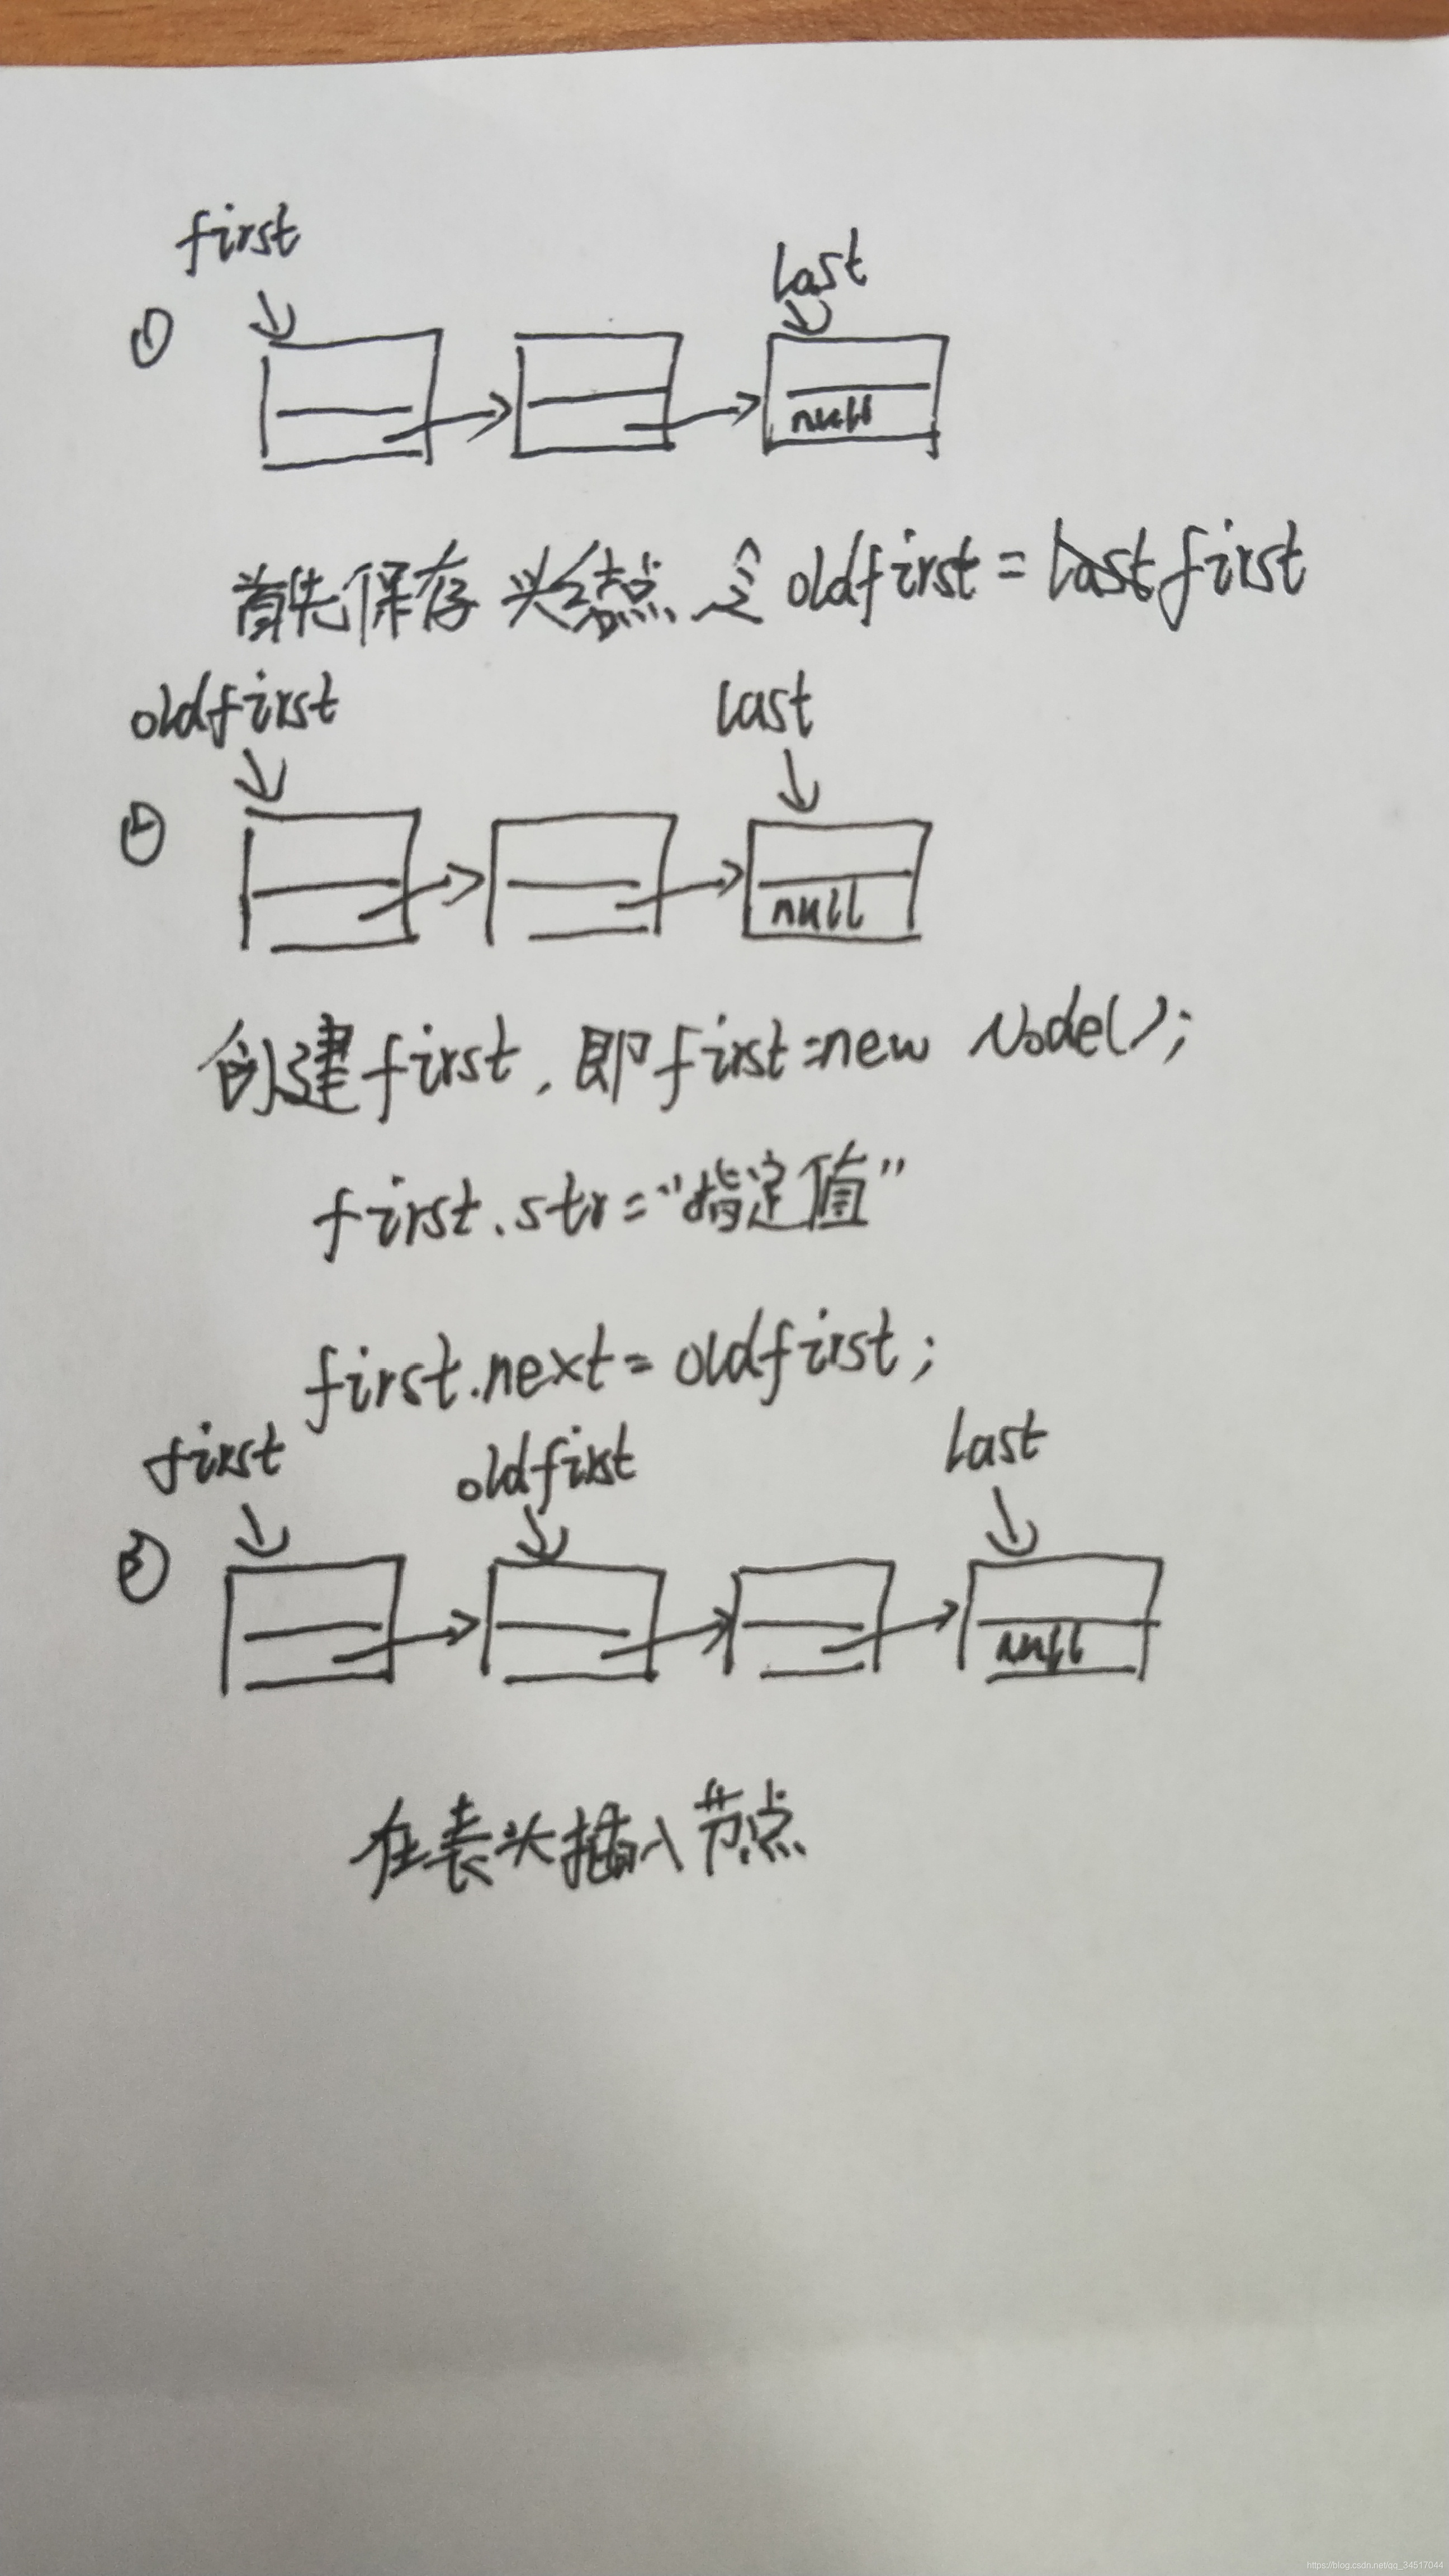 first
last
①
null
首先保存头结点 令oldfirst = last first
oldfirst
last
②
null
创建first，即first=new Node();
first.str="指定值"
first.next=oldfirst;
first
oldfirst
last
③
null
在表头插入节点
https://blog.csdn.net/qq_34517044